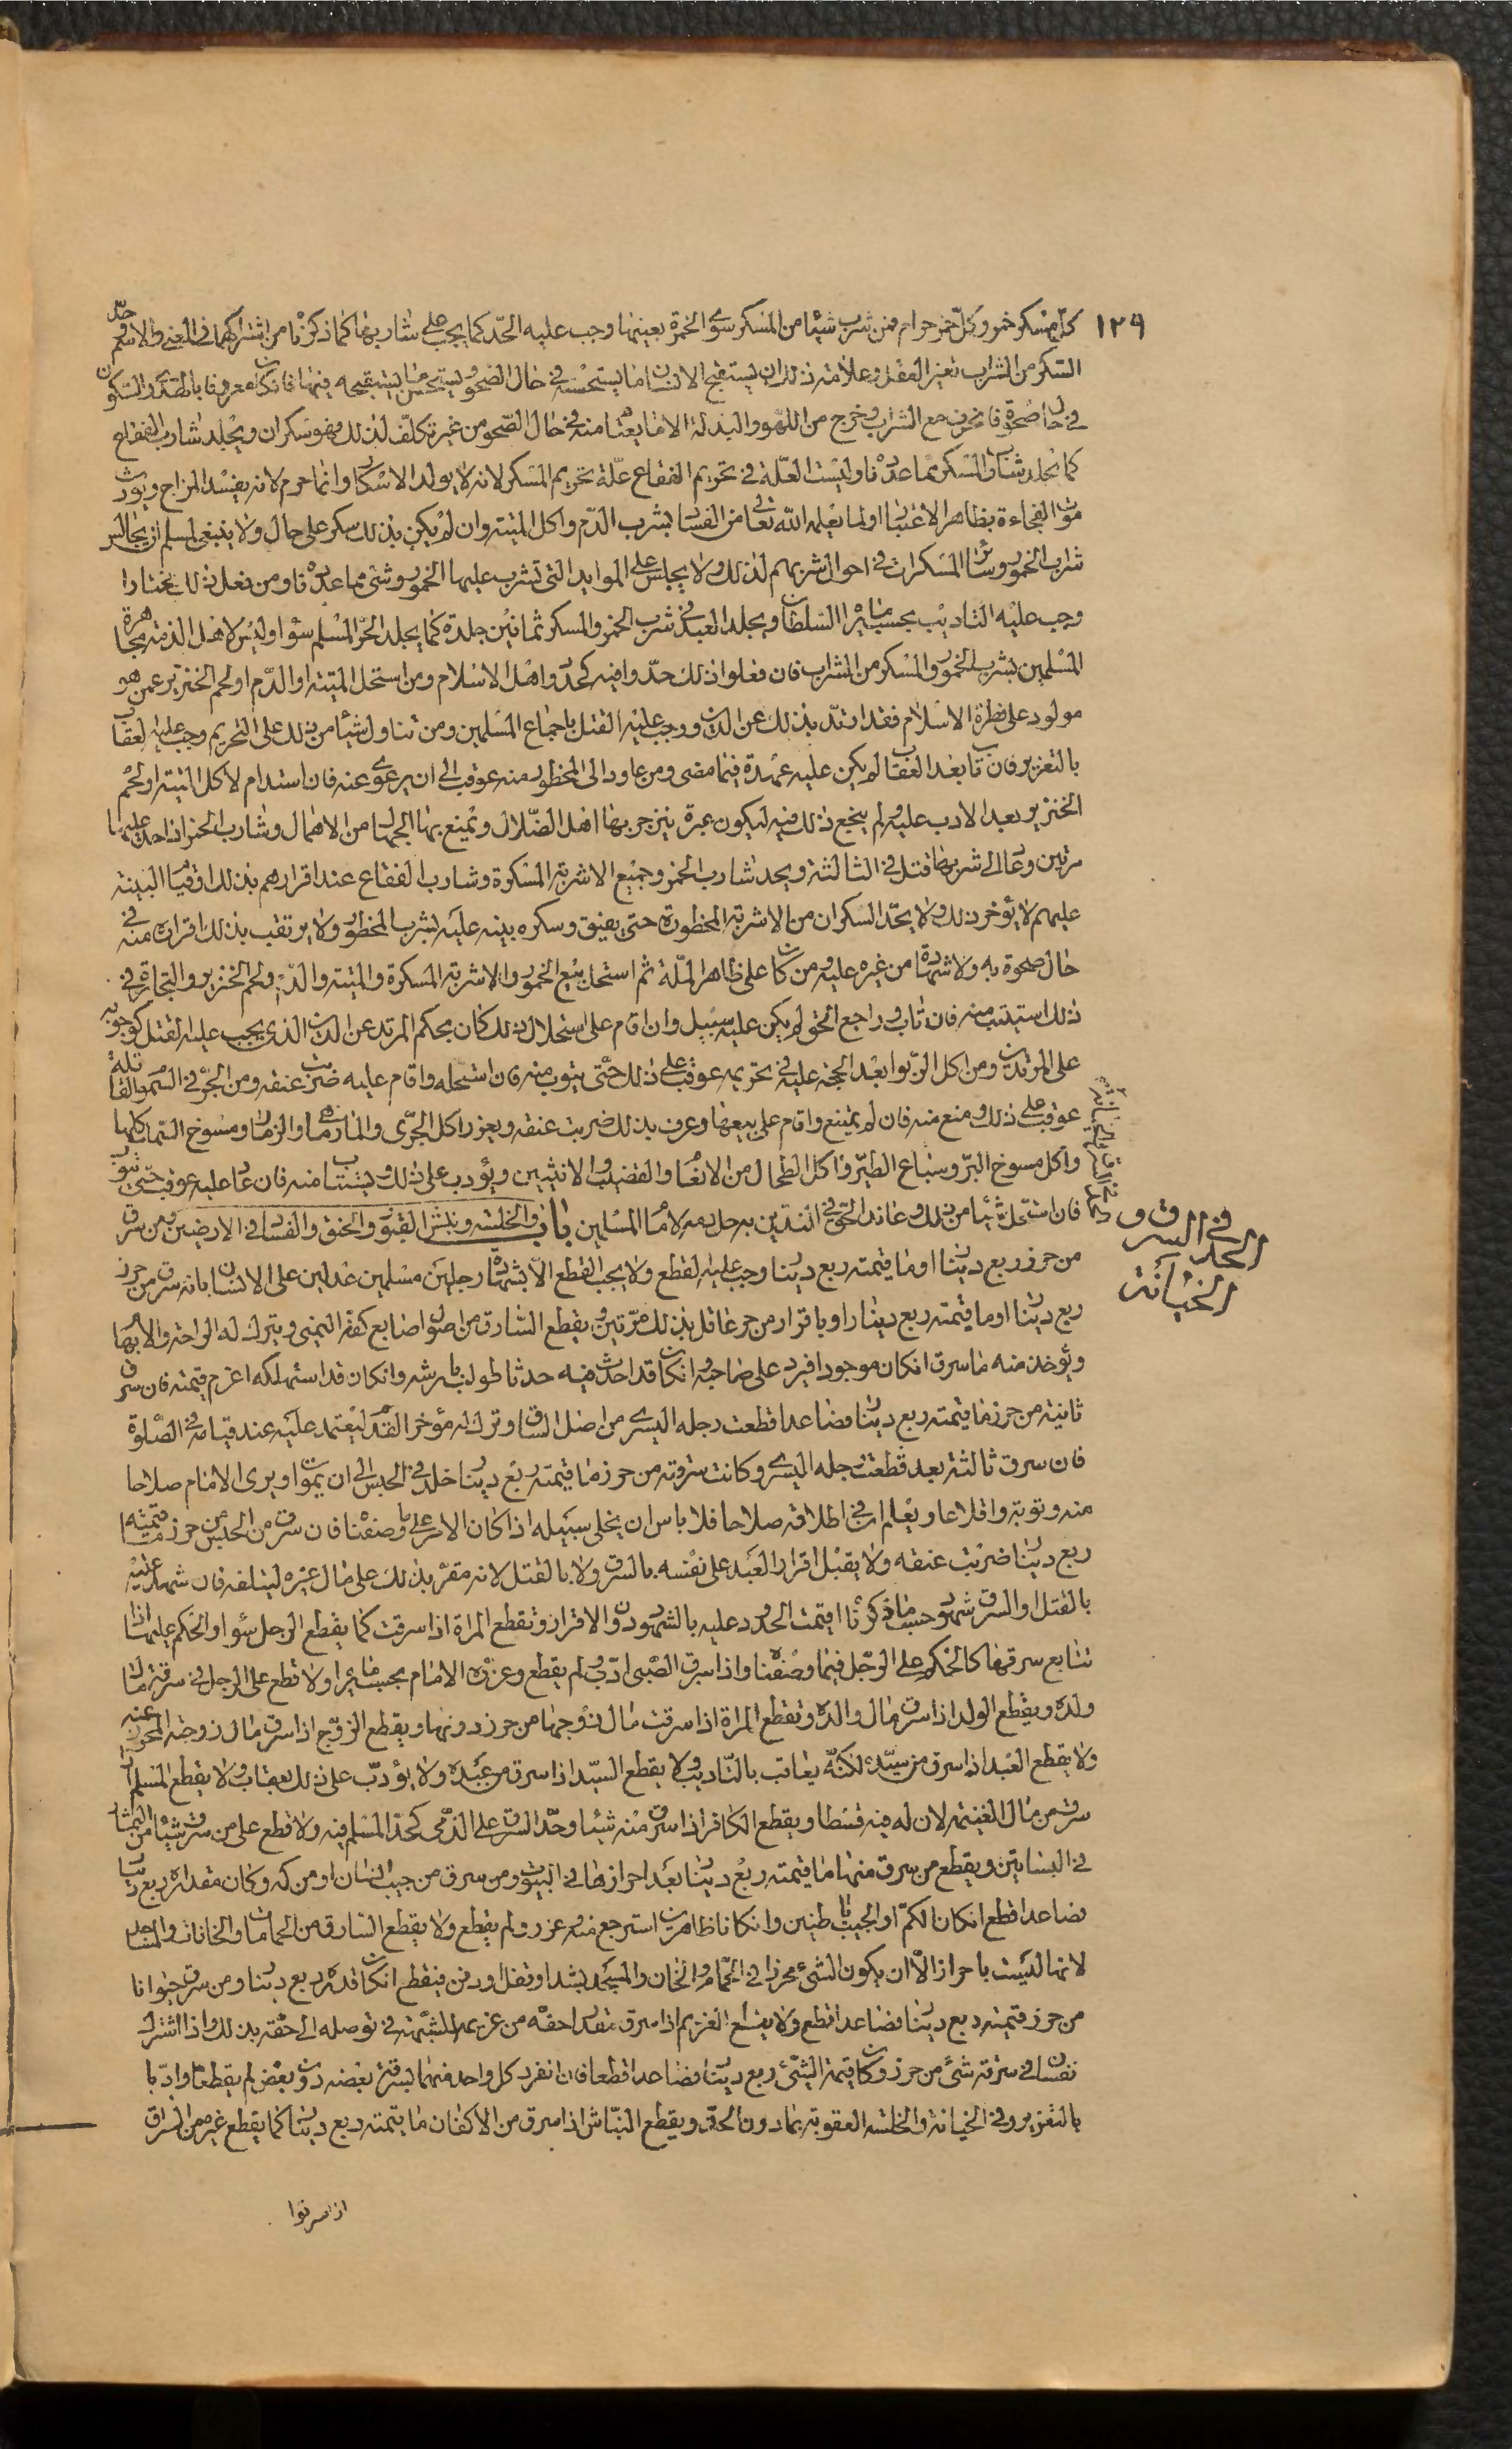 ١٢٩
كل مسكر خمر وكل خمر حرام فمن شرب شيئا من المسكر سوى الخمرة بعينها وجب عليه الحد كما يجب على شاربها كما ذكرنا من اشتراكهما في المعنى والاسم وحد
السكر من الشراب تغير العقل وعلامة ذلك ان يستقبح الانسان ما يستحسنه في حال الصحو ويستحسن ما يستقبحه فيها فاذا كان معروفا بالصمت والسكون
في حال صحوة فانخرف مع الشراب وخرج من اللهو والبذلة الى ما يعتاد منه في حال الصحو من غير تكلف لذلك فهو سكران ويجلد شارب الفقاع
كما يجلد شارب المسكر مما عددناه وليست العلة في تحريم الفقاع علة تحريم المسكر لانه لا يولد الاسكار وانما حرم لانه يفسد المزاج ويورث
موت الفجاءة بظاهر الاعتبار او لما يعلمه الله تعالى من الفساد بشرب الدم واكل الميتة وان لم يكن بذلك سكر على حال ولا ينبغي لمسلم ان يجالس
شراب الخمور وسائر المسكرات في احوال شربهم لذلك ولا يجلس على الموايد التي تشرب عليها الخمور وشئ مما عددناه ومن فعل ذلك مختارا
وجب عليه التاديب بحسب ما يراه السلطان ويجلد العبد في شرب الخمر والمسكر ثمانين جلدة كما يجلد الحر المسلم سواء وليس لاهل الذمة مجاهرة
المسلمين بشرب الخمور والمسكر من الشراب فان فعلوا ذلك حدوا فيه كحدود اهل الاسلام ومن استحل الميتة او الدم او لحم الخنزير عمن هو
مولود على فطرة الاسلام فقد ارتد بذلك عن الدين ووجب عليه القتل باجماع المسلمين ومن تناول شيئا من ذلك على التحريم وجب عليه العقاب
بالتعزير فان تاب بعد العقاب لم يكن عليه عهدة فيما مضى ومن عاود الى المحظور منه عوقب الى ان يرعوى عنه فان استدام لاكل الميتة او لحم
الخنزير بعد الادب عليه ولم ينجع ذلك فيه ليكون عبرة ينزجر بها اهل الضلال ويمنع بها الجهال من الاهمال وشارب الخمر اذا حد عليها
مرتين وعاد الى شربها قتل في الثالثة ويحد شارب الخمر وجميع الاشربة المسكرة وشارب الفقاع عند اقرارهم بذلك او قيام البينة
عليهم لا يؤخر ذلك ولا يحد السكران من الاشربة المحظورة حتى يفيق وسكره بينة عليه بشرب المحظور ولا يرتقب بذلك اقرار منه في
حال صحوة به ولا شهادة من غيره عليه ومن كان على ظاهر الملة ثم استحل بيع الخمور والاشربة المسكرة والميتة والدم ولحم الخنزير والتجارة في
ذلك استتيب منه فان تاب وراجع الحق لم يكن عليه سبيل وان اقام على استحلال ذلك كان بحكم المرتد عن الدين الذي يجب عليه القتل كوجوبه
على المرتدين ومن اكل الربوا بعد الحجة عليه في تحريمه عوقب على ذلك حتى يتوب منه فان استحله واقام عليه ضربت عنقه ومن اتجر في السموم القاتلة
عوقب على ذلك ومنع منه فان لم يمتنع واقام على بيعها وعرف بذلك ضربت عنقه ويعزر اكل الجرى والمارماهى والزمار ومسوخ السمك كلها
واكل مسوخ البر وسباع الطير واكل الطحال من الانعام والقضيب والانثيين ويؤدب على ذلك ويستتاب منه فان عاد عليه عوقب حتى يتوب
فان استحل شيئا من ذلك وعاند الحق في التدين به حل دمه لامام المسلمين باب والخلسة ونبش القبور والخنق والفساد في الارضين ومن سرق
في السرق و
الحد السرق
الخيانة
من حرز ربع دينار او ما قيمته ربع دينار وجب عليه القطع ولا يجب القطع الا بشهادة رجلين مسلمين عدلين على الانسان بانه سرق من حرز
ربع دينار او ما قيمته ربع دينارا وباقرار من حر عاقل بذلك مرتين ويقطع السارق من اصول اصابع كفه اليمنى ويترك له الراحة والابهام
ويؤخذ منه ما سرق ان كان موجودا فيرد على صاحبه وان كان قد احدث فيه حدثا طولب بارشه وان كان قد استهلكه اغرم قيمته فان سرق
ثانية من حرز ما قيمته ربع دينار فصاعدا قطعت رجله اليسرى من اصل الساق وترك له مؤخر القدم ليعتمد عليه عند قيامه في الصلوة
فان سرق ثالثة بعد قطعت رجله اليسرى وكانت سرقته من حرز ما قيمته ربع دينار خلد في الحبس الى ان يموت او يرى الامام صلاحا
منه وتوبة واقلاعا ويعلم ان في اطلاقه صلاحا فلا باس ان يخلى سبيله اذا كان الامر على ما وصفنا فان سرق من الحبس من حرز ما قيمته
ربع دينار ضربت عنقه ولا يقبل اقرار العبد على نفسه بالسرق ولا بالقتل لانه مقر بذلك على مال غيره ليتلفه فان شهد عليه
بالقتل او السرق شهود حسب ما ذكرنا اقيمت الحدود عليه بالشهود دون الاقرار وتقطع المراة اذا سرقت كما يقطع الرجل سواء والحكم عليها اذا
تتابع سرقتها كالحكم على الرجل فيما وصفناه واذا سرق الصبى ادب ولم يقطع وعزره الامام بحسب ما يراه ولا قطع على الرجل في سرقة مال
ولده ويقطع الولد اذا سرق مال والده وتقطع المراة اذا سرقت مال زوجها من حرز دونها ويقطع الزوج اذا سرق مال زوجته المحرز عنه
ولا يقطع العبد اذا سرق من سيده لكنه يعاقب بالتاديب ولا يقطع السيد اذا سرق من عبده ولا يؤدب على ذلك بعقاب ولا يقطع المسلم اذا
سرق من مال الغنيمة لان له فيه قسطا ويقطع الكافر اذا سرق منه شيئا وحد السرق على الذمى كحد المسلم فيه ولا قطع على من سرق شيئا من الثمار
في البساتين ويقطع من سرق منها ما قيمته ربع دينار بعد احرازها في البيوت ومن سرق من جيب انسان او من كمه وكان مقداره ربع دينار
فصاعدا قطع ان كان الكم او الجيب باطنين وان كانا ظاهرين استرجع منه وعزر ولم يقطع ولا يقطع السارق من الحمامات والخانات والمساجد
لانها ليست باحراز الا ان يكون الشئ محرزا في الحمام والخان والمسجد بشد او قفل او دفن فيقطع ان كان قدره ربع دينار ومن سرق حيوانا
من حرز قيمته ربع دينار فصاعدا قطع ولا يقطع الغريم اذا سرق مقدار حقه من غريمه للشبهة في توصله الى حقه بذلك واذا اشترك
نفسان في سرقة شئ من حرز وكان قيمة الشئ ربع دينار فصاعدا قطعا فان انفرد كل واحد منهما بسرقة بعضه دون بعض لم يقطعا وادبا
بالتعزير وفي الخيانة والخلسة العقوبة بما دون الحد ويقطع النباش اذا سرق من الاكفان ما قيمته ربع دينار كما يقطع غيره من السراق
اذا سرقوا